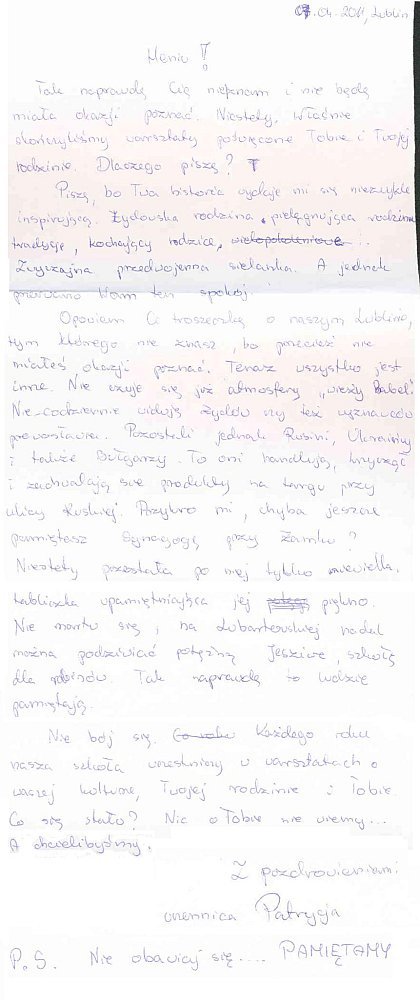 07.04.2011, Lublin
Heniu!
Tak naprawdę Cię nieznam i nie będę
miała okazji poznać. Niestety, właśnie
skończyliśmy warsztaty poświęcone Tobie i Twojej
rodzinie. Dlaczego piszę?
Piszę, bo Twa historia wydaje mi się niezwykle
inspirująca. Żydowska rodzina, pielęgnująca rodzinne
tradycje, kochający rodzice, wielopokoleniowe...
Zwyczajna przedwojenna sielanka. A jednak
przerwano Wam ten spokój.
Opowiem Ci troszeczkę o naszym Lublinie,
tym którego nie znasz, bo przecież nie
miałeś okazji poznać. Teraz wszystko jest
inne. Nie czuje się już atmosfery „wieży Babel”.
Nie codziennie widuję Żydów czy też wyznawców
prawosławia. Pozostali jednak Rusini, Ukraińcy
i także Bułgarzy. To oni handlują, krzyczą
i zachwalają swe produkty na targu przy
ulicy Ruskiej. Przykro mi, chyba jeszcze
pamiętasz Synagogę przy Zamku?
Niestety pozostała po niej tylko niewielka
tabliczka upamiętniająca jej piękno.
Nie martw się, na Lubartowskiej nadal
można podziwiać potężną Jesziwę, szkołę
dla rabinów. Tak naprawdę to ludzie
pamiętają.
Nie bój się. Co roku Każdego roku
nasza szkoła uczestniczy w warsztatach o
waszej kulturze, Twojej rodzinie i Tobie.
Co się stało? Nic o Tobie nie wiemy...
A chcielibyśmy.
Z pozdrowieniami
uczennica Patrycja
P.S. Nie obawiaj się.... PAMIĘTAMY